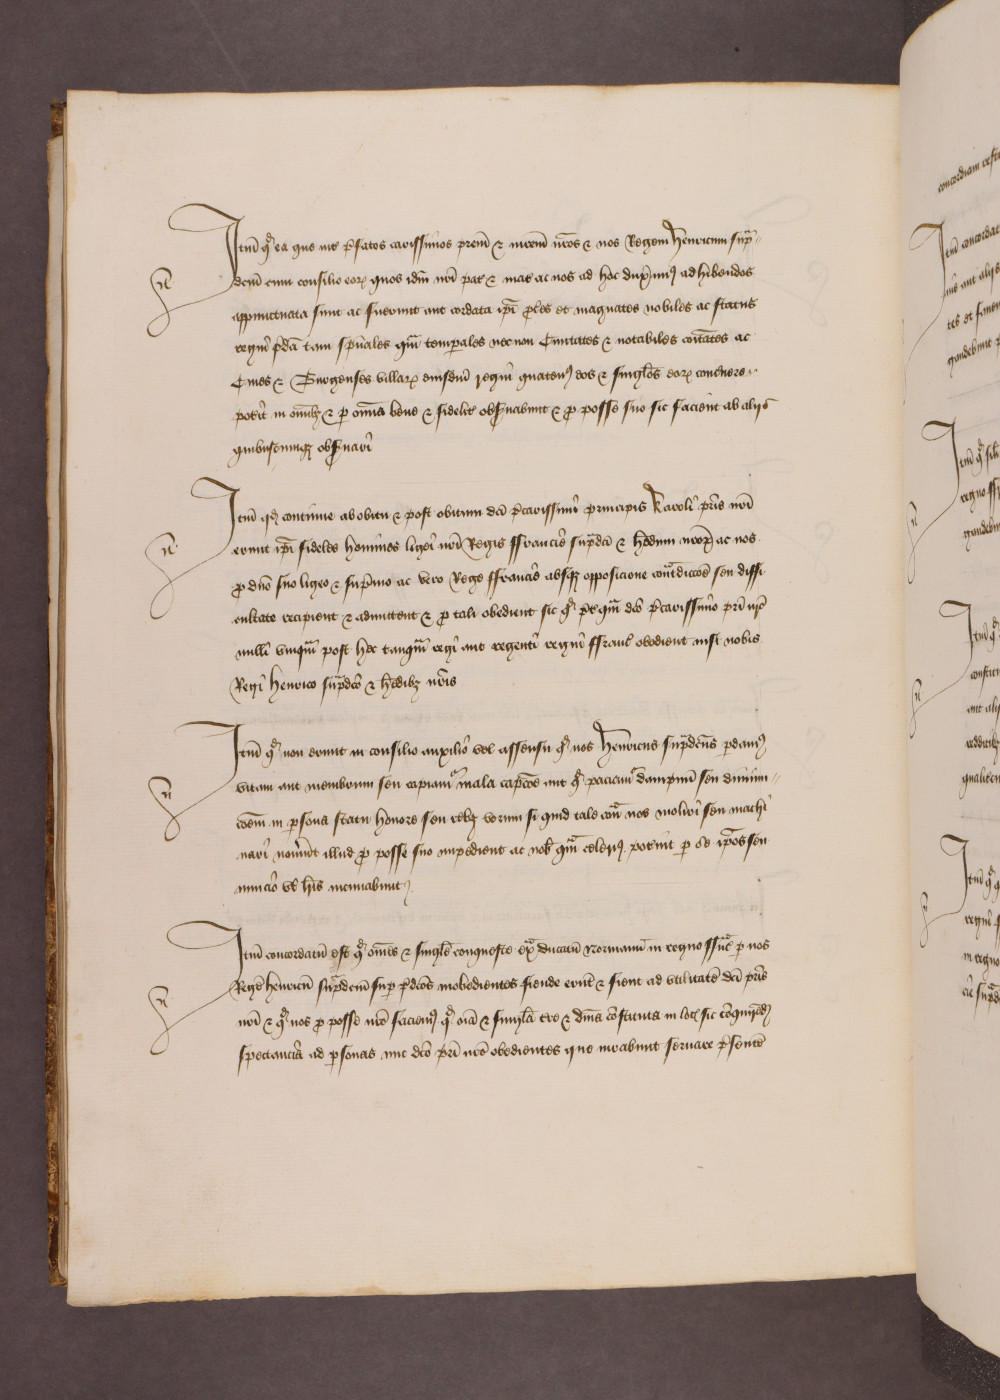 Itm̄ qᷓ ea que int̄ p̄fatos carissimos prem̄ ⁊ mrem̄ nr̄os ⁊ nos Regem henricum sup̄ᷓ
dcm̄ cum consilio eorꝝ quos idm̄ nr̄i pat̄ ⁊ mat̄ ac nos ad hoc duxim᷒ adhibendos
appunctuata sunt ac fuerunt aut cordata ip̄i ꝓc̄es et magnates nobiles ac status
regni p̄dc̄i tam sp̄uales qᷓm temꝑales necnon Ciuitates ⁊ notabiles coīt̄ates ac
Ciues ⁊ Burgenses villarꝝ eiusdm̄ regni quaten᷒ eos ⁊ singl̄os eorꝝ concn̄ere
pot̄it in om̄ibꝫ ⁊ ꝑ om̄ia bene ⁊ fidelit̄ obs̄uabunt ⁊ ꝓ posse suo sic faciēnt ab alijs
quibuscunqꝫ obs̄uari
Itm̄ qꝫ continue ab obitu ⁊ post obitum dc̄i p̄carissimi principis karoli pr̄is nr̄i
erunt ip̄i fideles homines ligei nr̄i Regis ffrancie sup̄ᷓdc̄i ⁊ hēdum nr̄oꝝ ac nos
ꝓ dn̄o suo ligeo ⁊ sup̄mo ac vero Rege ffrancie absqꝫ opposicione cont̄ᷓdiccōe seu diffi
cultate recipient ⁊ admittent ⁊ ꝓ tali obedient sic qᷓ p̄t̄qᷓm dc̄o p̄carissimo pr̄i nr̄o
nulli vnqᷓm post hec tanqᷓm regi aut regenti regni ffranc̄ obedient nisi nobis
Regi henrico sup̄ᷓdc̄o ⁊ hēdibꝫ nr̄is
Itm̄ qᷓ non erunt in consilio auxilio vel assensu qᷓ nos Henricus sup̄ᷓdc̄us ꝑdam᷒
vitam aut membrum seu capiamᷣ mala capc̄oē aut qᷓ paciamᷣ dampnū seu diminu
coēm in ꝑsona statu honore seu reb᷒ verum si quid tale cont̄ᷓ nos moliri seu machi
nari nou̓int illud ꝓ posse suo impedient ac nob̄ qᷓm cele᷒ius pot̄int ꝑ se ip̄os seu
nuncio vel l̄ris intimabunt
Itm̄ concordatū est qᷓ om̄es ⁊ singl̄e conqueste extᷓ ducatū Normannie in regno ffrᷓc̄ ꝑ nos
Regē henricū sup̄ᷓdcm̄ suꝑ p̄dc̄os inobedientes fiende erūt ⁊ fient ad vtilitatē dc̄i pr̄is
nr̄i ⁊ qᷓ nos ꝓ posse nr̄o faciem᷒ qᷓ oīa ⁊ singl̄a tr̄e ⁊ dn̄ia cōstituta in loc̄ sic cōquirēd̄
spectancia ad ꝑsonas nuc dc̄o pr̄i nr̄o obedientes que iurabunt seruare p̄sentē